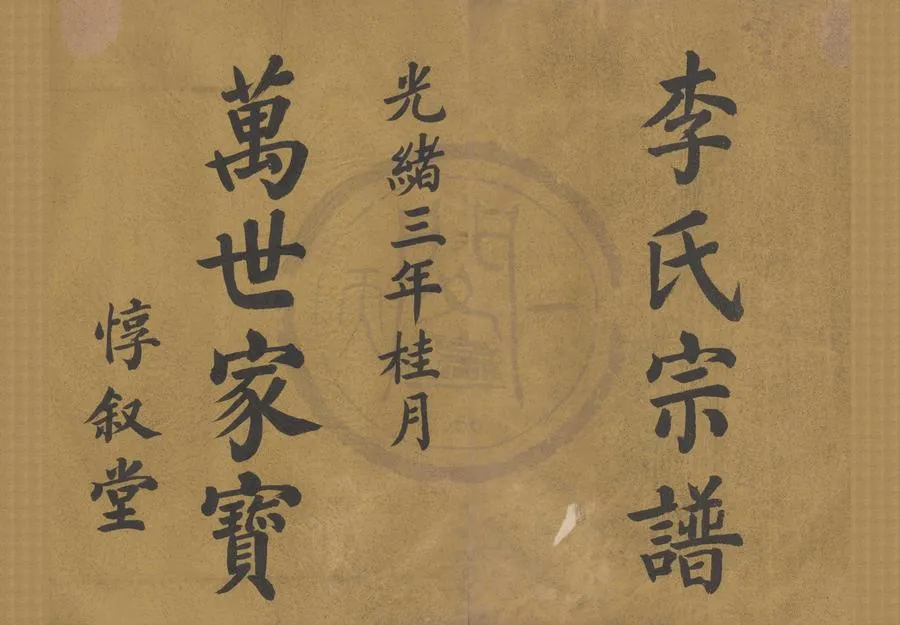 李氏宗譜
光緒三年桂月
萬世家寶
惇叙堂